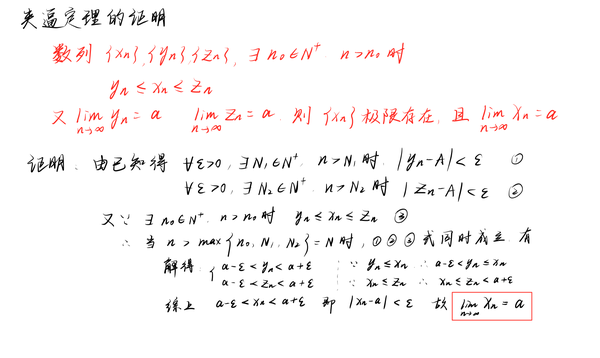 夹逼定理的证明
数列{xn},{yn}{zn}, ∃n₀∈N⁺ n>n₀时
yn≤xn≤zn
又 lim n→∞ yn=a lim n→∞ zn=a. 则{xn}极限存在, 且 lim n→∞ xn=a
证明. 由已知得 ∀ε>0, ∃N₁∈N⁺. n>N₁时. |yn-A|<ε ①
∀ε>0, ∃N₂∈N⁺. n>N₂时 |zn-A|<ε ②
又∵ ∃n₀∈N⁺. n>n₀时 yn≤xn≤zn ③
∴ 当 n>max{n₀, N₁, N₂}=N时, ①②③式同时成立. 有
解得. { a-ε<yn<a+ε ∵ yn≤xn ∴ a-ε<yn≤xn
a-ε<zn<a+ε ∵ xn≤zn ∴ xn≤zn<a+ε
综上 a-ε<xn<a+ε 即 |xn-a|<ε 故 lim n→∞ xn=a